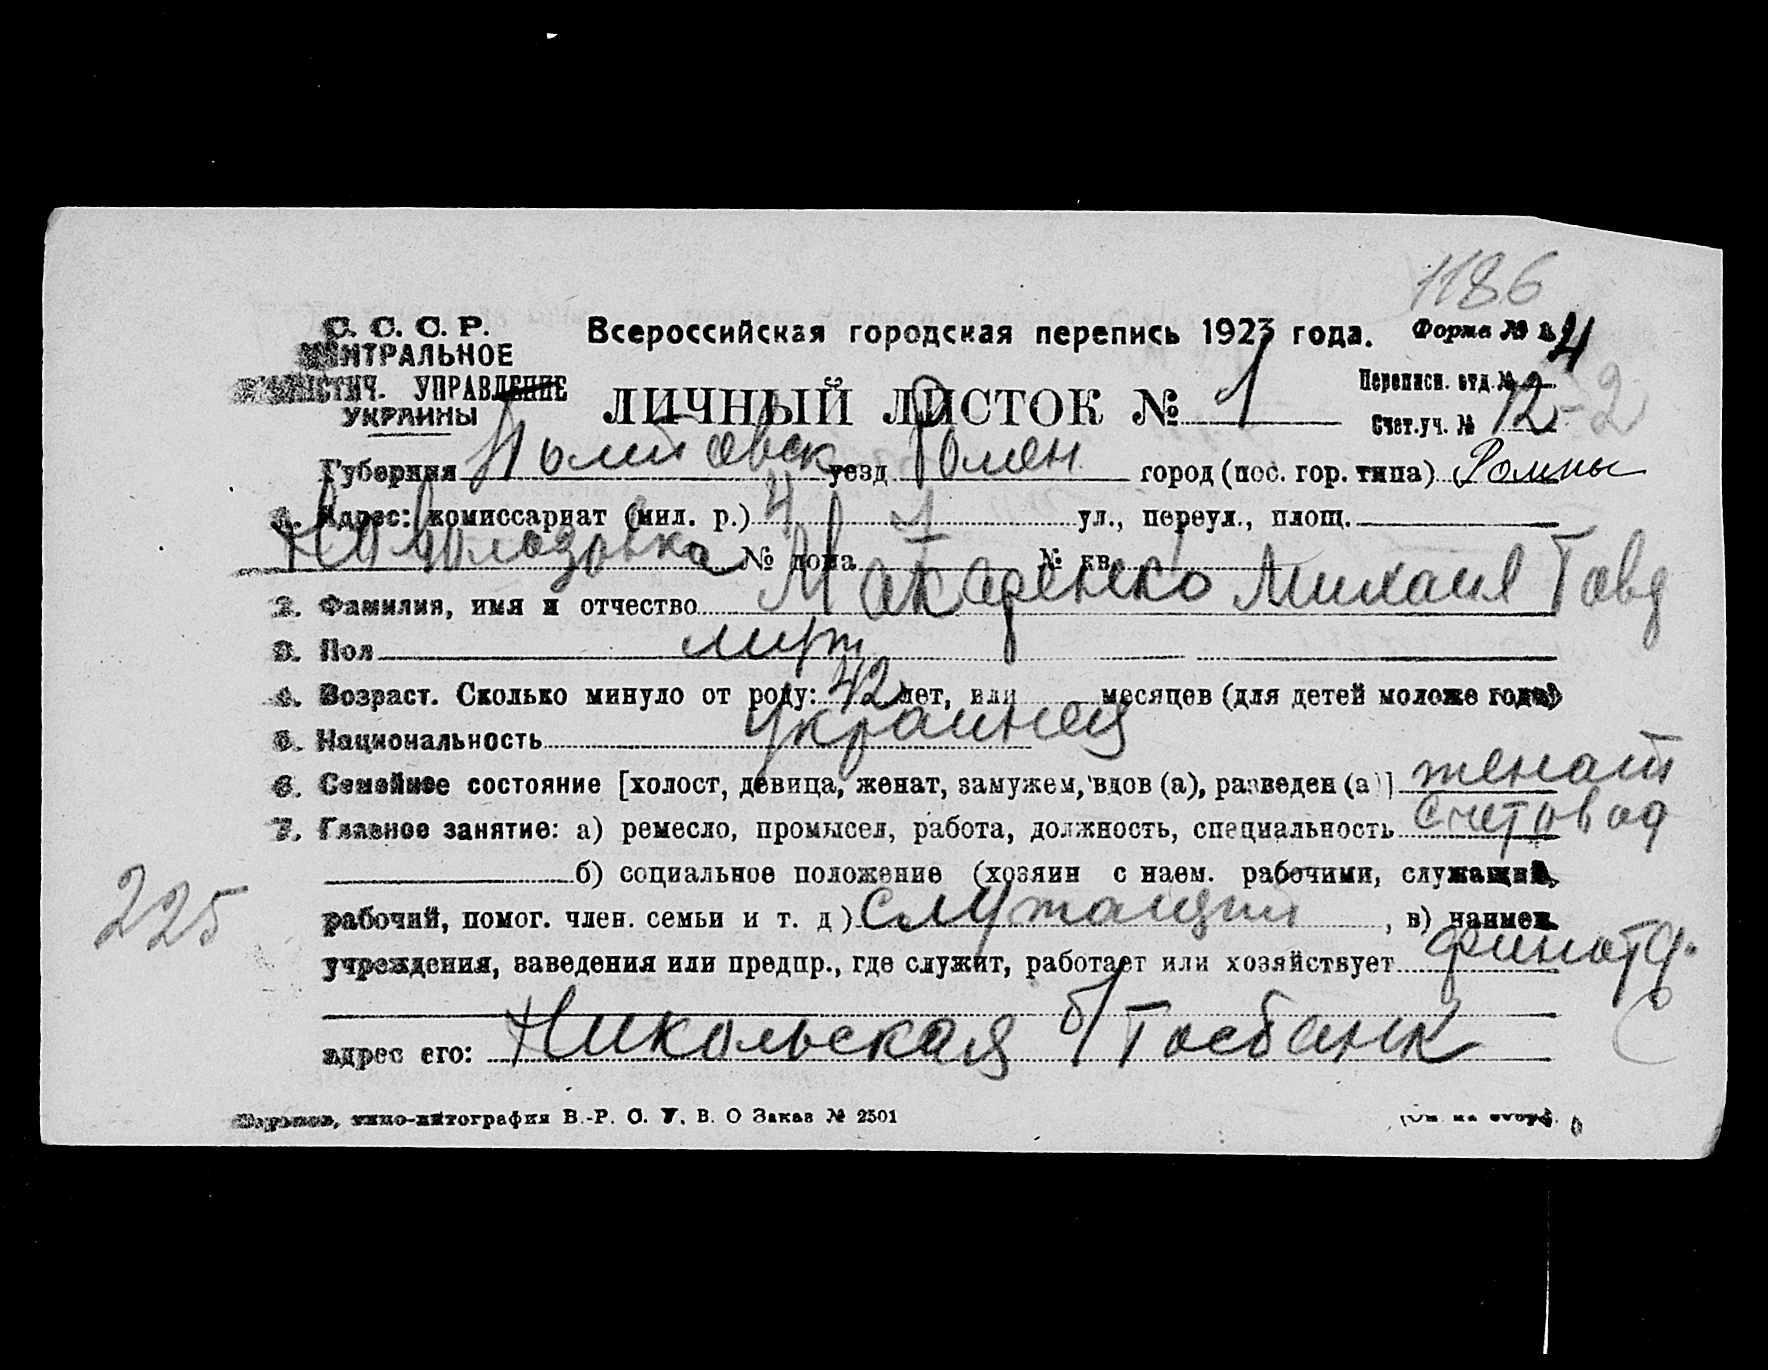 1186
С. С. С. Р.
ЦЕНТРАЛЬНОЕ
СТАТИСТИЧ. УПРАВЛЕНИЕ
УКРАИНЫ
Всероссийская городская перепись 1923 года. Форма № 4
ЛИЧНЫЙ ЛИСТОК № 1
Переписн. отд. №
Счет. уч. № 12-2
Губерния Полтавск уезд Ромен город (пос. гор. типа) Ромны
1. Адрес: комиссариат (мил. р.) 4 ул., переул., площ.
№ дома № кв.
2. Фамилия, имя и отчество Макаренко Михаил
3. Пол муж
4. Возраст. Сколько минуло от роду: 42 лет, или месяцев (для детей моложе года)
5. Национальность украинец
6. Семейное состояние [холост, девица, женат, замужем, вдов (а), разведен (а)] женат
7. Главное занятие: а) ремесло, промысел, работа, должность, специальность Счетовод
б) социальное положение (хозяин с наем. рабочими, служащий,
рабочий, помог. член. семьи и т. д) служащий, в) наимен.
225
учреждения, заведения или предпр., где служит, работает или хозяйствует финотд.
адрес его: Никольская б/ Госбанк
Харьков, типо-литография В.-Р. С. У. В. О Заказ № 2501